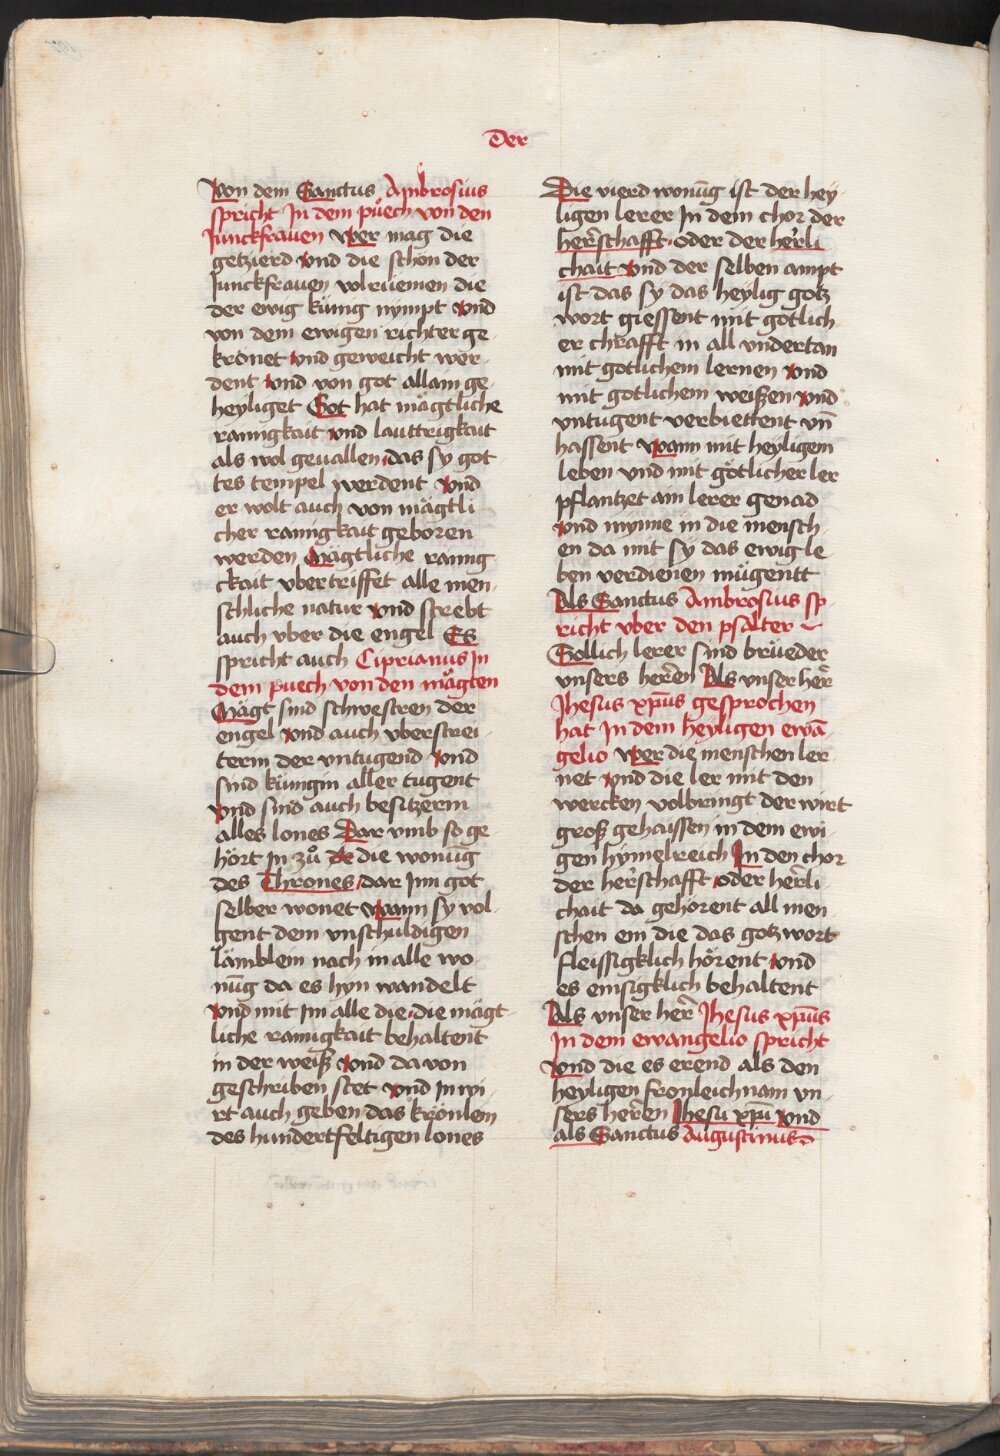 Der
Von dem Sanctus Ambrosius
spricht In dem půech von den
Junckfrauen Wer mag die
getzierd vnd die schön der
Junckfrauen volrüemen die
der ewig künig nympt vnd
von dem ewigen richter ge
krönet vnd geweicht wer
dent vnd von got allain ge
heyliget Got hat mägtliche
rainigkait vnd lauttrigkait
als wol geuallen das sy got
tes tempel werdent vnd
er wolt auch von mägtli
cher rainigkait geboren
werden Mägtliche rainig
ckait vbertriffet alle men
schliche natur vnd strebt
auch vber die engel Es
spricht auch Ciprianus In
dem puech von den mägten
Mägt sind schwestren der
engel vnd auch vberstrei
terin der vntugend vnd
sind künigin aller tugent
vnd sind auch besitzerin
alles lones Dar vmb so ge
hört In zů de die wonūg
des Thrones dar Inn got
selber wonet wann sy vol
gent dem vnschuldigen
lämblein nach in alle wo
nūg da es hyn wandelt
vnd mit Im alle die die mägt
liche rainigkait behaltent
in der weiß vnd da von
geschriben stet vnd In wi
rt auch geben das krönlein
des hundertfeltigen lones
Die vierd wonūg ist der hey
ligen lerer In dem chor der
her̄schafft oder der her̄li
chait vnd der selben ampt
ist das sy das heylig gotz
wort giessent mit götlich
er chrafft in all vndertan
mit gotlichem lernen vnd
mit gotlichem weißen vnd
vntugent verbiettent vn̄
hassent wann mit heyligem
leben vnd mit götlicher ler
pflantzet ain lerer genad
vnd mynne in die mensch
en da mit sy das ewig le
ben verdienen mügentt
Als Sanctus Ambrosius sp
richt vber den psalter
Sollich lerer sind brüeder
vnsers heren̄ Als vnser her̄
Jhesus xp̄us gesprochen
hat In dem heyligen ewā
gelio Wer die menschen ler
net vnd die ler mit den
wercken volbringt der wirt
groß gehaissen in dem ewi
gen hymelreich In den chor
der her̄schafft oder her̄li
chait da gehörent all men
schen ein die das gotz wort
fleissigklich hörent vnd
es emsigklich behaltent
Als vnser her̄ Jhesus xp̄us
In dem ewangelio spricht
vnd die es erend als den
heyligen fronleichnam vn
sers heren̄ Jhesu xp̄u vnd
als Sanctus Augustinus